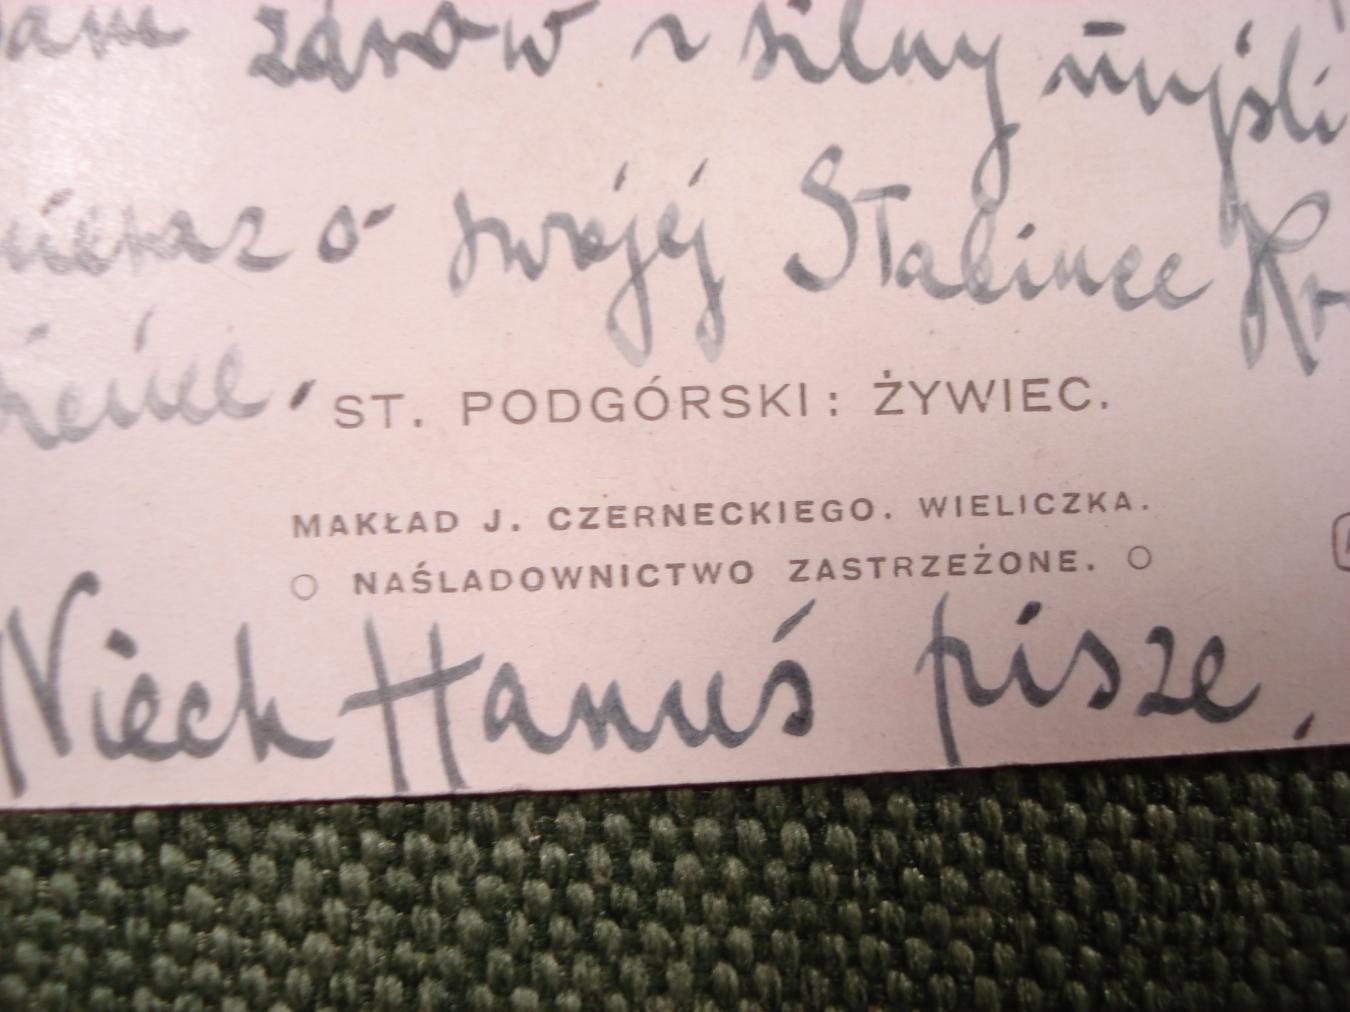 zdrów i silny myśli
o swojéj
ST. PODGÓRSKI: ŻYWIEC.
MAKŁAD J. CZERNECKIEGO. WIELICZKA.
○ NAŚLADOWNICTWO ZASTRZEŻONE. ○
Niech Hanuś pisze.